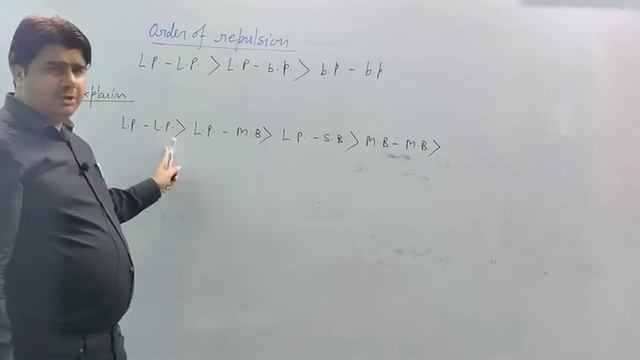 Order of repulsion
L.P - L.P. > L P - b.p. > b.p - b.p
L.P. - L.P. > L.P. - M.B > L.P. - S.B. > M.B - M.B. >